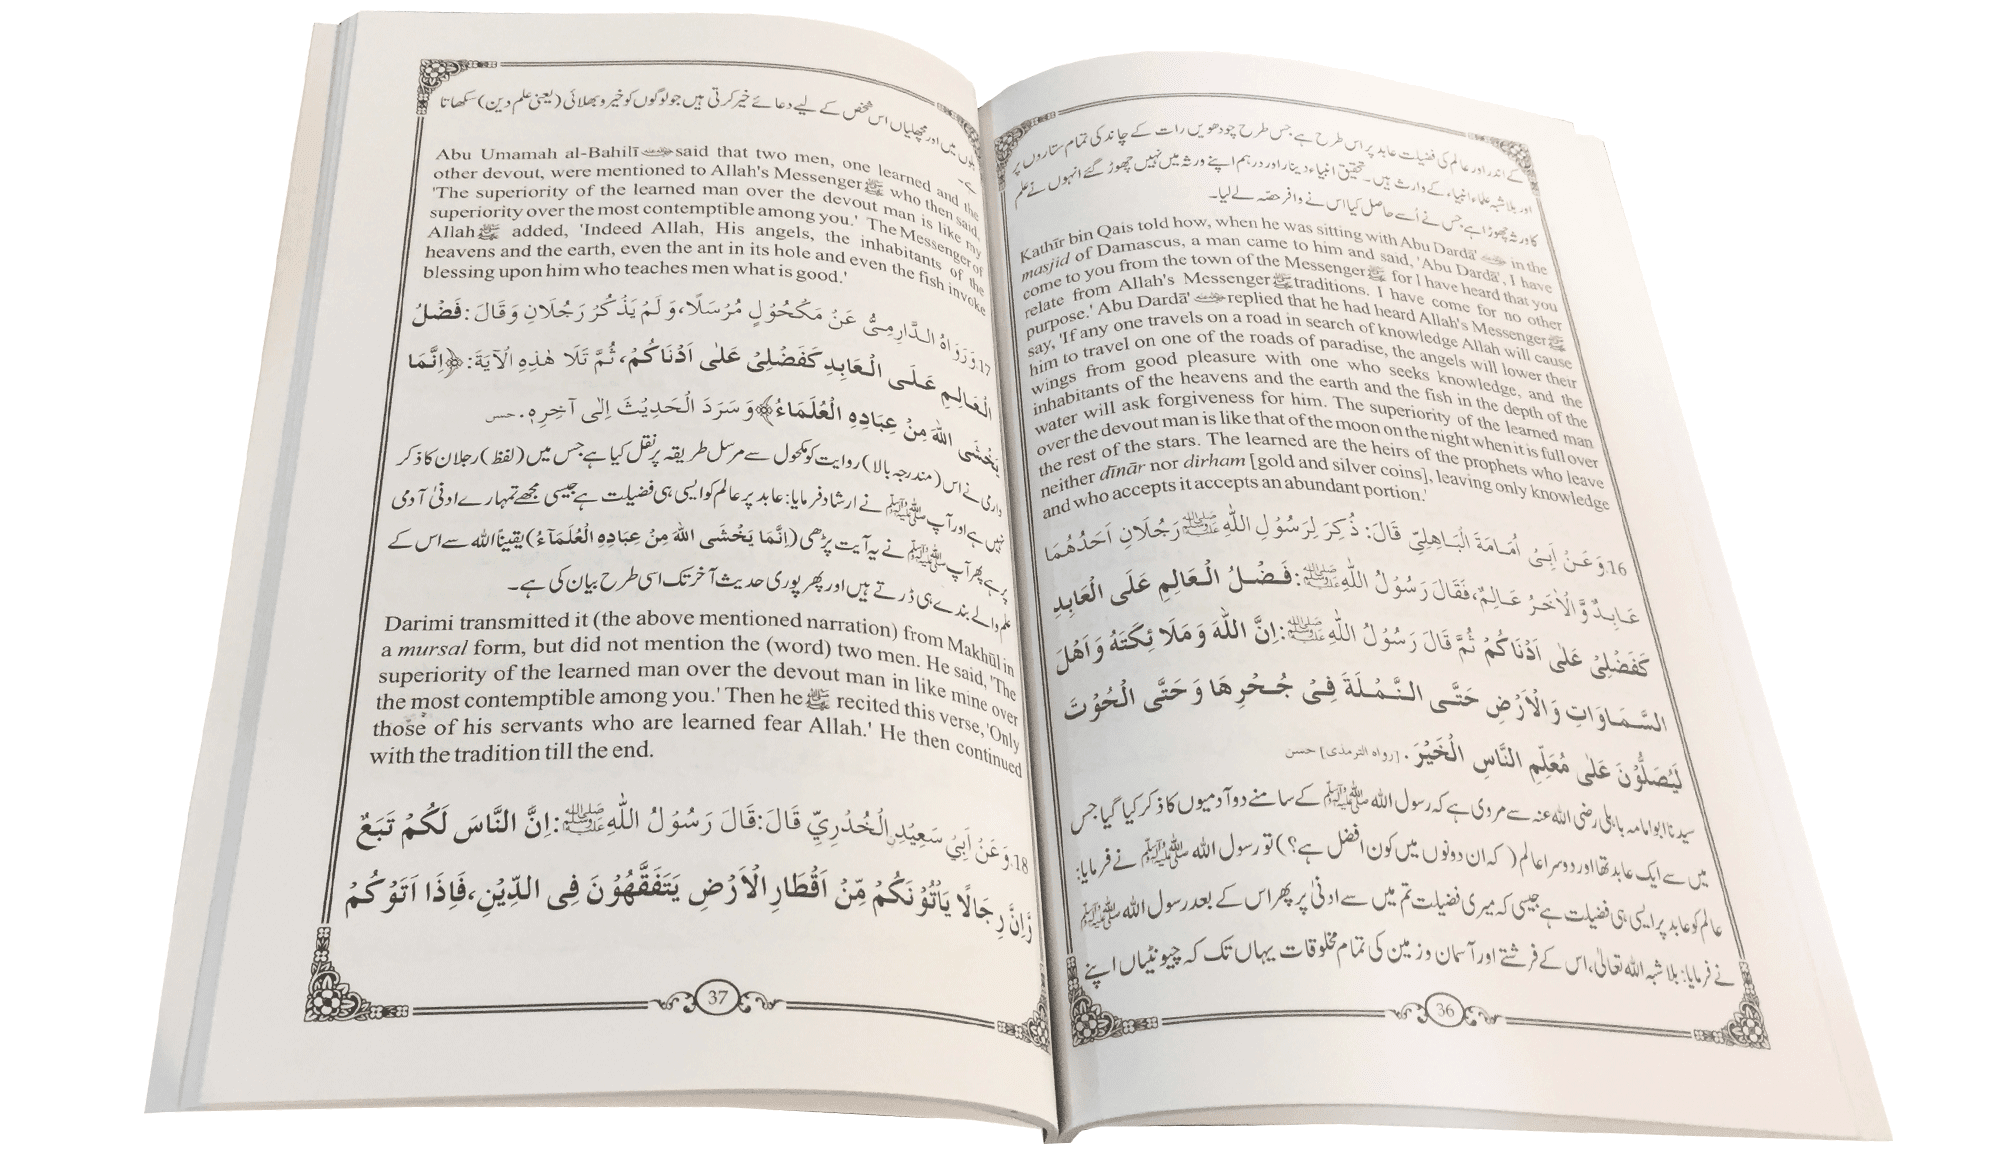 کے اندر اور عالم کی فضیلت عابد پر اس طرح ہے جس طرح چودھویں رات کے چاند کی تمام ستاروں پر
اور بلاشبہ علماء انبیاء کے وارث ہیں۔ تحقیق انبیاء دینار اور درہم اپنے ورثہ میں نہیں چھوڑ گئے انہوں نے علم
کا ورثہ چھوڑا ہے جس نے اُسے حاصل کیا اس نے وافر حصّہ لے لیا۔
Kathīr bin Qais told how, when he was sitting with Abu Dardā' in the
masjid of Damascus, a man came to him and said, 'Abu Dardā', I have
come to you from the town of the Messenger ﷺ for I have heard that you
relate from Allah's Messenger ﷺ traditions. I have come for no other
purpose.' Abu Dardā' replied that he had heard Allah's Messenger ﷺ
say, 'If any one travels on a road in search of knowledge Allah will cause
him to travel on one of the roads of paradise, the angels will lower their
wings from good pleasure with one who seeks knowledge, and the
inhabitants of the heavens and the earth and the fish in the depth of the
water will ask forgiveness for him. The superiority of the learned man
over the devout man is like that of the moon on the night when it is full over
the rest of the stars. The learned are the heirs of the prophets who leave
neither dīnār nor dirham [gold and silver coins], leaving only knowledge
and who accepts it accepts an abundant portion.'
16. وَعَنْ اَبِىْ اُمَامَةَ الْبَاهِلِيِّ قَالَ: ذُكِرَ لِرَسُوْلِ اللّٰهِ ﷺ رَجُلَانِ اَحَدُهُمَا
عَابِدٌ وَّالْاٰخَرُ عَالِمٌ، فَقَالَ رَسُوْلُ اللّٰهِ ﷺ: فَضْلُ الْعَالِمِ عَلَى الْعَابِدِ
كَفَضْلِىْ عَلٰى اَدْنَاكُمْ ثُمَّ قَالَ رَسُوْلُ اللّٰهِ ﷺ: اِنَّ اللّٰهَ وَمَلَائِكَتَهُ وَاَهْلَ
السَّمَاوَاتِ وَالْاَرْضِ حَتَّى النَّمْلَةَ فِىْ جُحْرِهَا وَحَتَّى الْحُوْتَ
لَيُصَلُّوْنَ عَلٰى مُعَلِّمِ النَّاسِ الْخَيْرَ. [رواه الترمذى] حسن
سیدنا ابوامامہ باہلی رضی اللہ عنہ سے مروی ہے کہ رسول اللہ ﷺ کے سامنے دو آدمیوں کا ذکر کیا گیا جس
میں سے ایک عابد تھا اور دوسرا عالم (کہ ان دونوں میں کون افضل ہے؟) تو رسول اللہ ﷺ نے فرمایا:
عالم کو عابد پر ایسی ہی فضیلت ہے جیسی کہ میری فضیلت تم میں سے ادنیٰ پر پھر اس کے بعد رسول اللہ ﷺ
نے فرمایا: بلاشبہ اللہ تعالیٰ، اس کے فرشتے اور آسمان و زمین کی تمام مخلوقات یہاں تک کہ چیونٹیاں اپنے
36
بلوں میں اور مچھلیاں اس شخص کے لیے دعائے خیر کرتی ہیں جو لوگوں کو خیر و بھلائی (یعنی علم دین) سکھاتا
ہے۔
Abu Umamah al-Bahilī said that two men, one learned and the
other devout, were mentioned to Allah's Messenger ﷺ who then said,
'The superiority of the learned man over the devout man is like my
superiority over the most contemptible among you.' The Messenger of
Allah ﷺ added, 'Indeed Allah, His angels, the inhabitants of the
heavens and the earth, even the ant in its hole and even the fish invoke
blessing upon him who teaches men what is good.'
17. وَرَوَاهُ الدَّارِمِىُّ عَنْ مَكْحُوْلٍ مُرْسَلًا، وَلَمْ يَذْكُرْ رَجُلَانِ وَقَالَ: فَضْلُ
الْعَالِمِ عَلَى الْعَابِدِ كَفَضْلِىْ عَلٰى اَدْنَاكُمْ، ثُمَّ تَلَا هٰذِهِ الْاٰيَةَ: ﴿اِنَّمَا
يَخْشَى اللّٰهَ مِنْ عِبَادِهِ الْعُلَمَاءُ﴾ وَسَرَدَ الْحَدِيْثَ اِلٰى آخِرِهٖ. حسن
دارمی نے اس (مندرجہ بالا) روایت کو مکحول سے مرسل طریقہ پر نقل کیا ہے جس میں (لفظ) رجلان کا ذکر
نہیں ہے اور آپ ﷺ نے ارشاد فرمایا: عابد پر عالم کو ایسی ہی فضیلت ہے جیسی مجھے تمہارے ادنیٰ آدمی
پر ہے پھر آپ ﷺ نے یہ آیت پڑھی (اِنَّمَا يَخْشَى اللّٰهَ مِنْ عِبَادِهِ الْعُلَمَآءُ) یقیناً اللہ سے اس کے
علم والے بندے ہی ڈرتے ہیں اور پھر پوری حدیث آخر تک اسی طرح بیان کی ہے۔
Darimi transmitted it (the above mentioned narration) from Makhūl in
a mursal form, but did not mention the (word) two men. He said, 'The
superiority of the learned man over the devout man in like mine over
the most contemptible among you.' Then he ﷺ recited this verse, 'Only
those of his servants who are learned fear Allah.' He then continued
with the tradition till the end.
18. وَعَنْ اَبِيْ سَعِيْدِ نِ الْخُدْرِيِّ قَالَ: قَالَ رَسُوْلُ اللّٰهِ ﷺ: اِنَّ النَّاسَ لَكُمْ تَبَعٌ
وَّاِنَّ رِجَالًا يَاْتُوْنَكُمْ مِّنْ اَقْطَارِ الْاَرْضِ يَتَفَقَّهُوْنَ فِى الدِّيْنِ، فَاِذَا اَتَوْكُمْ
37